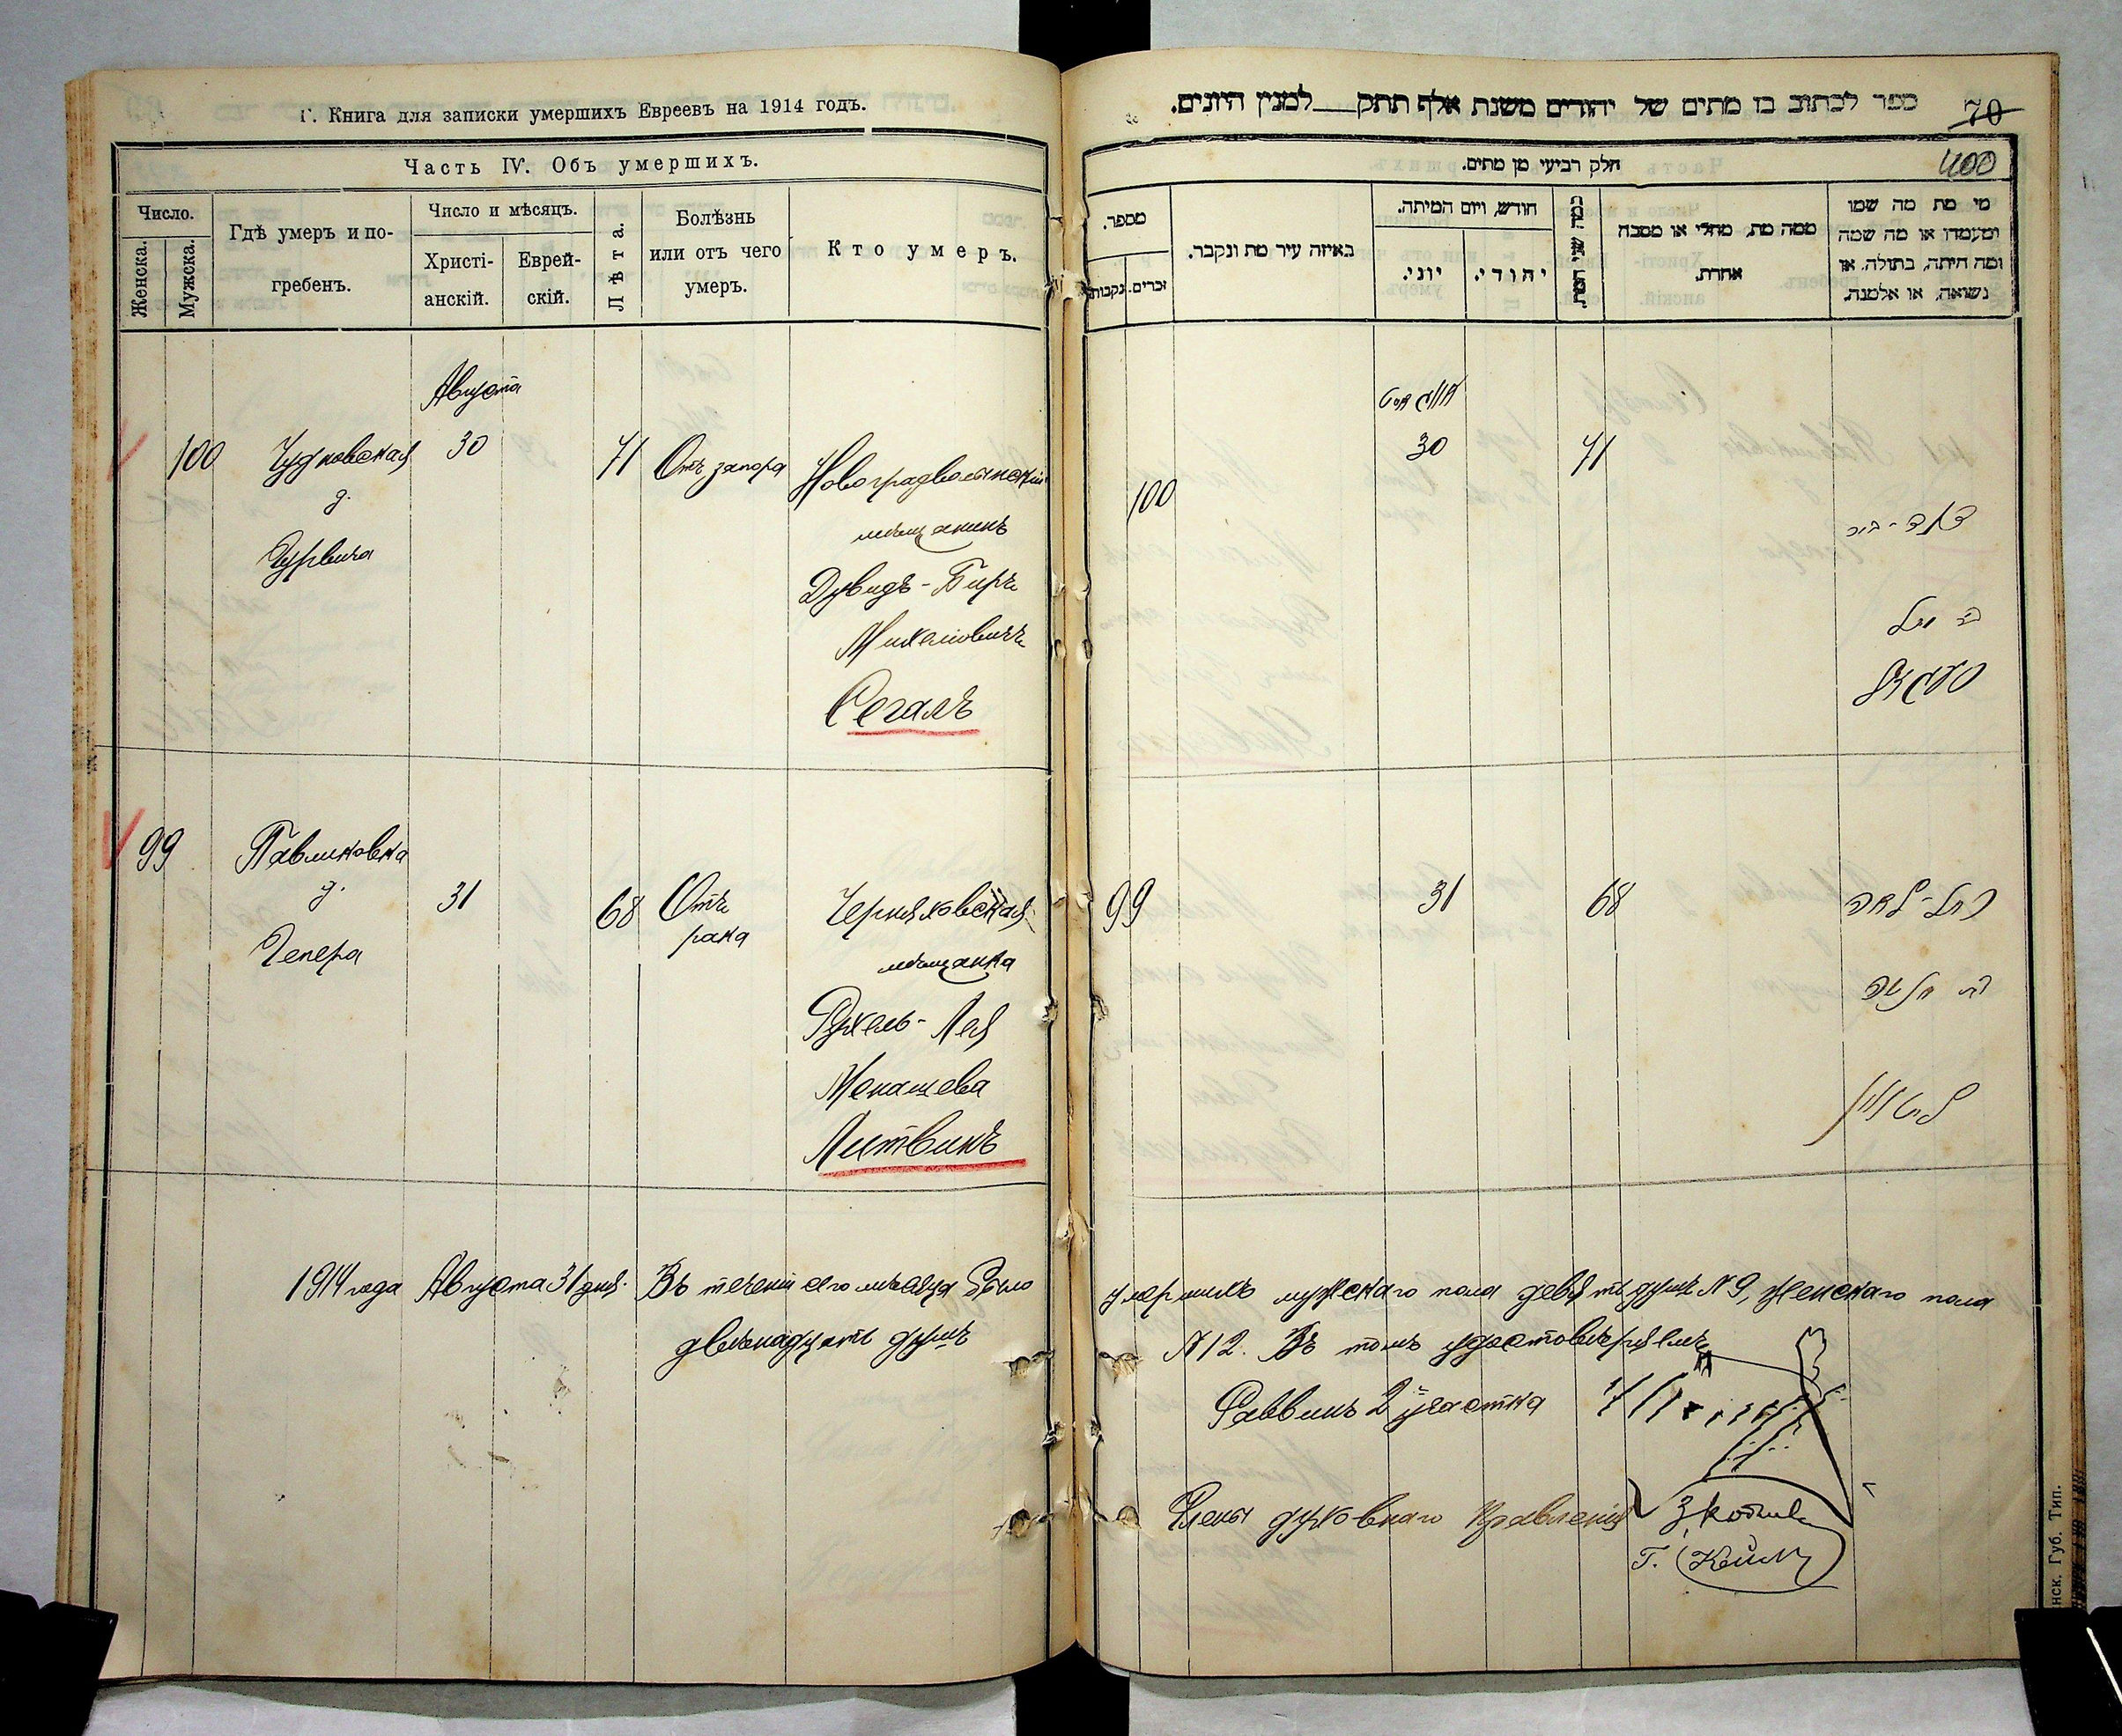 Г. Книга для записки умершихъ Евреевъ на 1914 годъ.
Часть IV. Объ умершихъ.
Число.
Женска.
Мужска.
Гдѣ умеръ и по-
гребенъ.
Число и мѣсяцъ.
Христі-
анскій.
Еврей-
скій.
Лѣта.
Болѣзнь
или отъ чего
умеръ.
Кто умеръ.
Августа
100 Чудновская 30 71 Отъ запора Новоградволынскій
д.
Гурвича
мѣщанинъ
Дувидъ-Биръ
Михелевичъ
Сегалъ
99 Павликовка
д.
Гепера
31 68 Отъ
рака
Черняховская
мѣщанка
Рухель-Лея
Менашева
Литвинъ
1914 года Августа 31 дня. Въ теченіи сего мѣсяца было
двѣнадцать душъ
ספר לכתוב בו מתים של יהודים משנת אלף תתק למנין היונים.
70
400
חלק רביעי מן מתים.
מספר.
זכרים.
נקבות
באיזה עיר מת ונקבר.
חודש, ויום המיתה.
יוני.
יהודי.
כמה שני המת.
ממה מת, מחלי או מסבה
אחרת.
מי מת מה שמו
ומעמדו או מה שמה
ומה היתה, בתולה, או
נשואה, או אלמנה.
אווגוסט
100 30 71
דוד-בער
בר מיכל
סעגאל
99 31 68 רחל-לאה
בת מנשה
ליטווין
умершихъ мужскаго пола девять душъ N 9, женскаго пола
N 12. Въ томъ удостовѣряемъ
Раввинъ 2 участка
Члены духовнаго Правленія
Г.
нск. Губ. Тип.